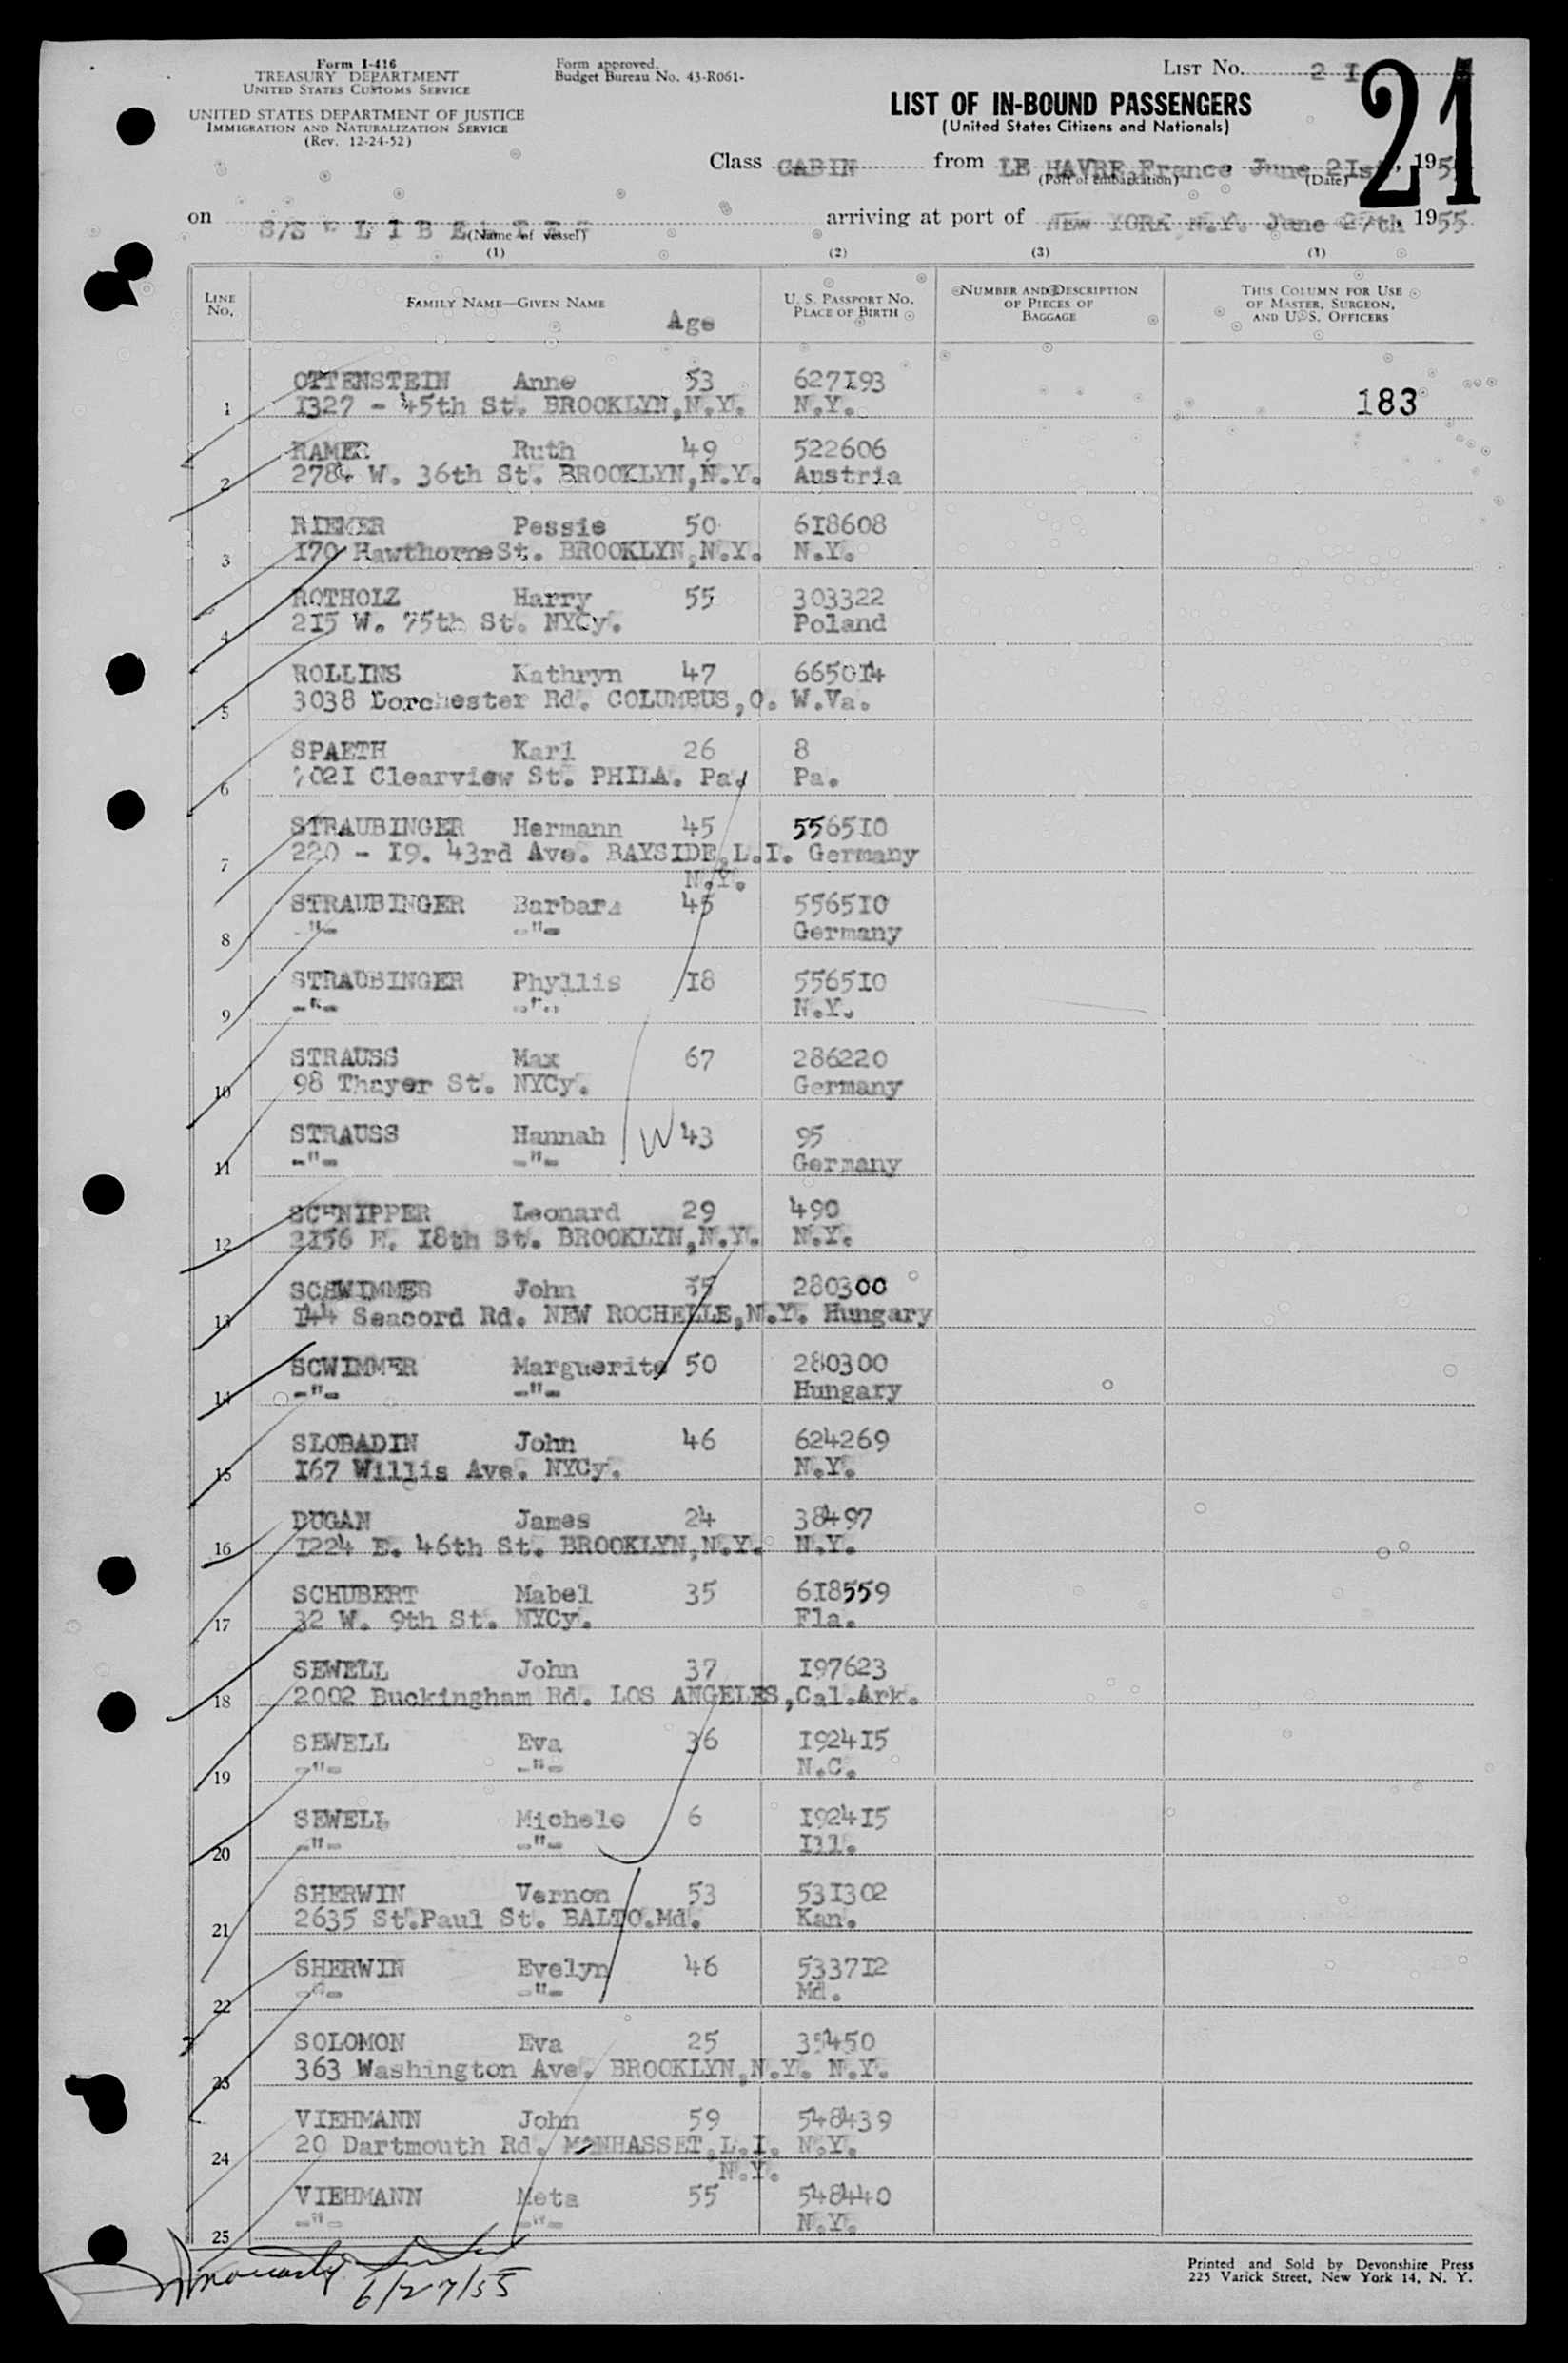 Form I-416
TREASURY DEPARTMENT
UNITED STATES CUSTOMS SERVICE
UNITED STATES DEPARTMENT OF JUSTICE
IMMIGRATION AND NATURALIZATION SERVICE
(Rev. 12-24-52)
Form approved.
Budget Bureau No. 43-R061-
LIST No. 2 I
21
LIST OF IN-BOUND PASSENGERS
(United States Citizens and Nationals)
Class CABIN from LE HAVRE, France, June 2Ist, 195
(Port of embarkation) (Date)
on S/S " L I B E
(Name of vessel)
arriving at port of NEW YORK, N.Y. June 27th, 1955
(1) (2) (3) (4)
LINE No. FAMILY NAME—GIVEN NAME Age U. S. PASSPORT NO. PLACE OF BIRTH NUMBER AND DESCRIPTION OF PIECES OF BAGGAGE THIS COLUMN FOR USE OF MASTER, SURGEON, AND U. S. OFFICERS
OTTENSTEIN Anne 53 627I93
1 I327 - 45th St. BROOKLYN,N.Y. N.Y. 183
RAMER Ruth 49 522606
2 2784 W. 36th St. BROOKLYN,N.Y. Austria
RIEMER Pessie 50 6I8608
3 I70 Hawthorne St. BROOKLYN,N.Y. N.Y.
ROTHOLZ Harry 55 303322
4 2I5 W. 75th St. NYCy. Poland
ROLLINS Kathryn 47 6650I4
5 3038 Dorchester Rd. COLUMBUS,O. W.Va.
SPAETH Karl 26 8
6 702I Clearview St. PHILA. Pa. Pa.
STRAUBINGER Hermann 45 5565I0
7 220 - I9. 43rd Ave. BAYSIDE,L.I. Germany
N.Y.
STRAUBINGER Barbara 45 5565I0
8 -"- -"- Germany
STRAUBINGER Phyllis I8 5565I0
9 -"- -"- N.Y.
STRAUSS Max 67 286220
10 98 Thayer St. NYCy. Germany
STRAUSS Hannah W 43 95
11 -"- -"- Germany
SCHNIPPER Leonard 29 490
12 2I56 E. I8th St. BROOKLYN,N.Y. N.Y.
SCHWIMMER John 55 280300
13 I44 Seacord Rd. NEW ROCHELLE,N.Y. Hungary
SCWIMMER Marguerite 50 280300
14 -"- -"- Hungary
SLOBADIN John 46 624269
15 I67 Willis Ave. NYCy. N.Y.
DUGAN James 24 38497
16 I224 E. 46th St. BROOKLYN,N.Y. N.Y.
SCHUBERT Mabel 35 6I8559
17 32 W. 9th St. NYCy. Fla.
SEWELL John 37 I97623
18 2002 Buckingham Rd. LOS ANGELES,Cal.Ark.
SEWELL Eva 36 I924I5
19 -"- -"- N.C.
SEWELL Michele 6 I924I5
20 -"- -"- Ill.
SHERWIN Vernon 53 53I302
21 2635 St.Paul St. BALTO.Md. Kan.
SHERWIN Evelyn 46 5337I2
22 -"- -"- Md.
SOLOMON Eva 25 35450
23 363 Washington Ave. BROOKLYN,N.Y. N.Y.
VIEHMANN John 59 548439
24 20 Dartmouth Rd. MANHASSET,L.I. N.Y.
N.Y.
VIEHMANN Meta 55 548440
25 -"- -"- N.Y.
6/27/55
Printed and Sold by Devonshire Press
225 Varick Street, New York 14, N. Y.